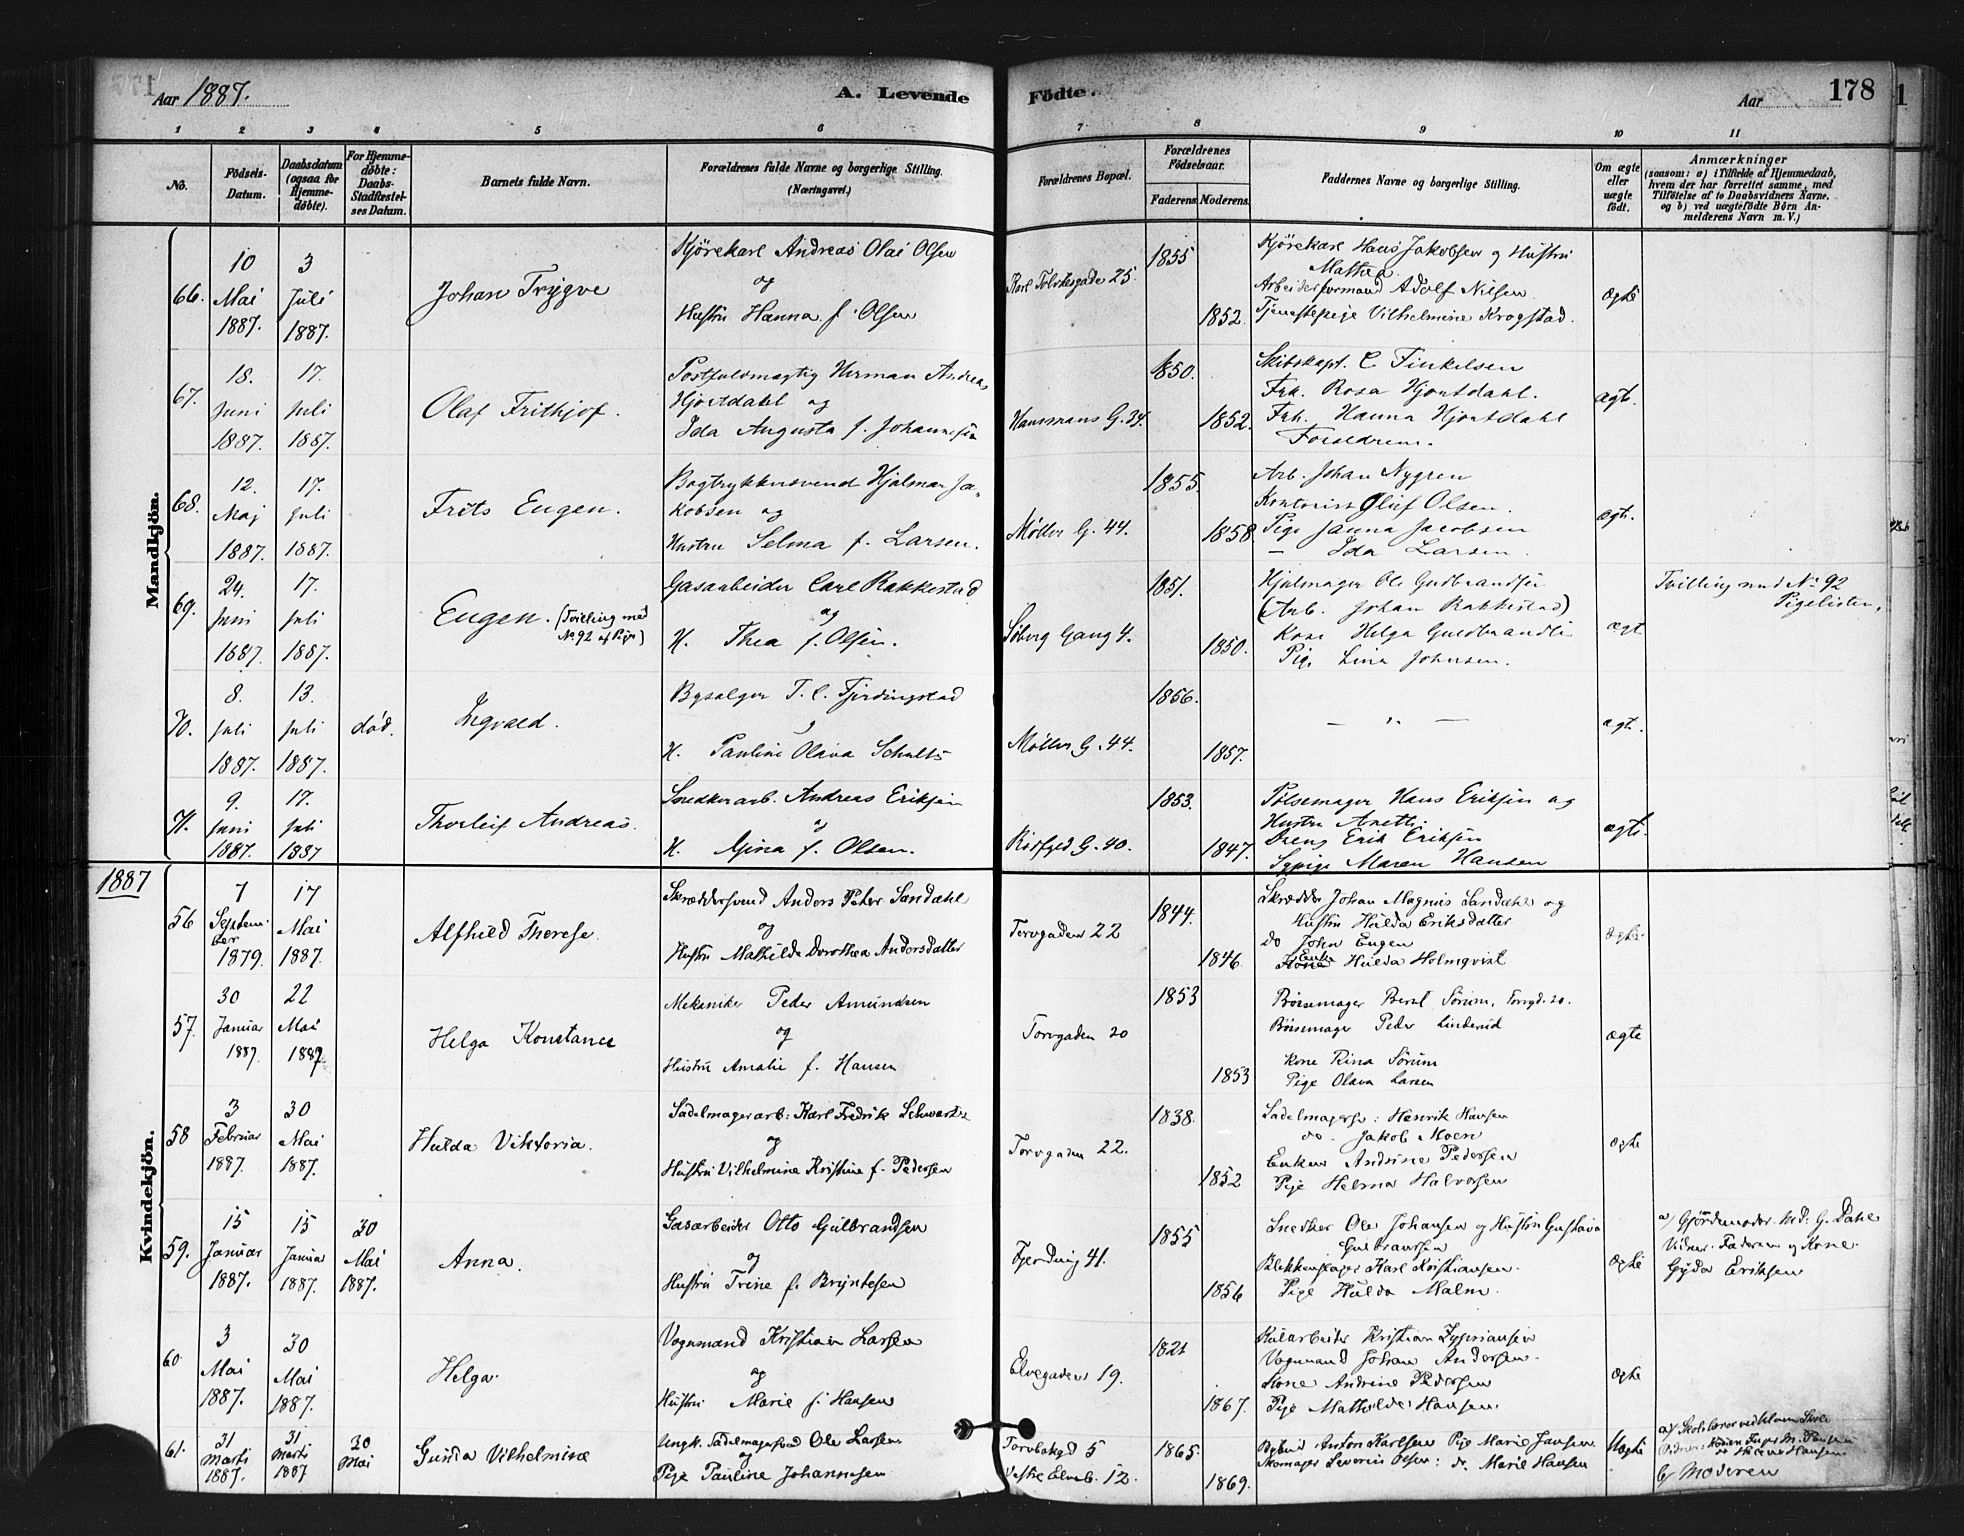 Aar 1887.
A. Levende Födte.
Aar
178
1 2 3 4 5 6 7 8 9 10 11
No.
Födsels-Datum.
Daabsdatum (ogsaa for Hjemmedöbte).
For Hjemmedöbte: Daabs-Stadfæstelses Datum.
Barnets fulde Navn.
Forældrenes fulde Navne og borgerlige Stilling. (Næringsvei.)
Forældrenes Bopæl.
Forældrenes Födselsaar.
Faderens. Moderens.
Faddernes Navne og borgerlige Stilling.
Om ægte eller uægte födt.
Anmærkninger
(saasom: a) i Tilfælde af Hjemmedaab, hvem der har forrettet samme, med Tilföielse af to Daabsvidners Navne, og b) ved uægtefödte Börn Anmelderens Navn m. V.)
Mandkjön.
66.
10 Mai 1887.
3 Juli 1887.
Johan Trygve
Kjørekarl Andreas Olai Olsen
og
Hustru Hanna f. Olsen
25.
1855
1852.
Kjørekarl Hans Jakobsen og Hustru
Mathea
Arbeidsformand Adolf Nilsen
Tjenestepige Vilhelmine Krogstad.
Ægte
67.
18. Juni 1887
17. Juli 1887.
Olaf Frithjof.
Postfuldmægtig Herman Andreas
Hjortdahl og
Ida Augusta f. Johannesen
Hausmans G. 34.
1850.
1852.
Skibskapt. C Finkelsen
Frk. Rosa Hjortdahl.
Frk. Hanna Hjortdahl
Forældrene.
ægte.
68.
12. Maj 1887.
17. Juli 1887.
Frits Eugen.
Bogtrykkersvend Hjalmar Ja-
kobsen og
Hustru Selma f. Larsen.
Møller G. 44.
1855.
1858.
Arb. Johan Nygren
Kontorist Oluf Olsen.
Pige Janna Jacobsen
— Ida Larsen.
ægte.
69.
24. Juni 1887.
17. Juli 1887.
Eugen. (Tvilling med
No 92 af Piger)
Gasarbeider Carl Rakkestad
og
H. Thea f. Olsen.
Søberg Gang 4.
1851.
1850.
Hjulmager Ole Gudbrandsen
(Arb. Johan Rakkestad)
Kone Helga Guldbrandsen
Pige Lina Johnsen.
ægt
Tvilling med No 92
Pigelisten.
70.
8. Juli 1887.
13. Juli 1887.
død.
Ingvald.
Bysælger T. C. Fjerdingstad
H. Pauline Olava Schults
Møller G. 44.
1856.
1857.
— " —
ægt.
71.
9. Juni 1887.
17. Juli 1887
Thorleif Andreas.
Snedkerarb. Andreas Eriksen
og
H. Gina f. Olsen.
Korsgd G. 40.
1853.
1847.
Pølsemager Hans Eriksen og
Hustru Anette.
Dreng Erik Eriksen
Sypige Maren Hansen
ægte.
1887
Kvindekjön.
56
7 September 1879.
17 Mai 1887.
Alfhild Therese.
Skræddersvend Anders Peter Sandahl
og
Hustru Mathilde Dorothea Andersdatter
Torvgaden 22
1844.
1846.
Skrædder Johan Magnus Sandahl og
Hustru Hulda Eriksdatter
do John Eugen
Enke Hulda Holmqvist
Ægte.
57.
30 Januar 1887.
22 Mai 1887
Helga Konstance
Mekaniker Peder Amundsen
og
Hustru Amalie f. Hansen
Torvgaden 20
1853
1853
Børsemager Bernt Sørum, Torvgd. 20.
Børsemager Peder Linderud
Kone Rina Sørum
Pige Olava Larsen
ægte
58
3 Februar 1887.
30 Mai 1887.
Hulda Viktoria.
Sadelmagerarb: Karl Fredrik Schwartz
og
Hustru Vilhelmine Kristine f. Pedersen
Torvgaden 22.
1838.
1852
Sadelmagersv: Henrik Hansen
do. Jakob Moen
Enken Andrine Pedersen
Pige Helma Halvorsen
ægte
59.
15 Januar 1887.
15 Januar 1887.
30 Mai 1887.
Anna.
Gasarbeider Otto Gulbrandsen
og
Hustru Trine f. Bryntesen
Fjerding 41.
1855
1856
Snedker Ole Johansen og Hustru Gustava
Gulbranssen
Blikkenslager Karl Kristiansen.
Pige Hulda Malm.
ægte
a) Gjordemoder Md: G. Dahl
Vidner Faderen og Kone
Gyda Eriksen
60
3 Mai 1887.
30 Mai 1887.
Helga.
Vognmand Kristian Larsen
og
Hustru Marie f. Hansen
Elvegaden 19.
1821
1867.
Kularbeider Kristian Zypriansen
Vognmand Johan Andersen.
Kone Andrine Pedersen
Pige Mathilde Hansen.
ægte
61.
31 Marts 1887.
31 Marts 1887
30 Mai
Gunda Vilhelmine
Ungk. Sadelmagersvend Ole Larsen
og
Pige Pauline Johannesen
Torvbakgd 5
Vestre Elveb. 12.
1865.
1869.
Bybud Anton Karlsen Pige Marie Jansen
Skomager Severin Olsen: do. Marie Hansen
Uægte
b) Moderen